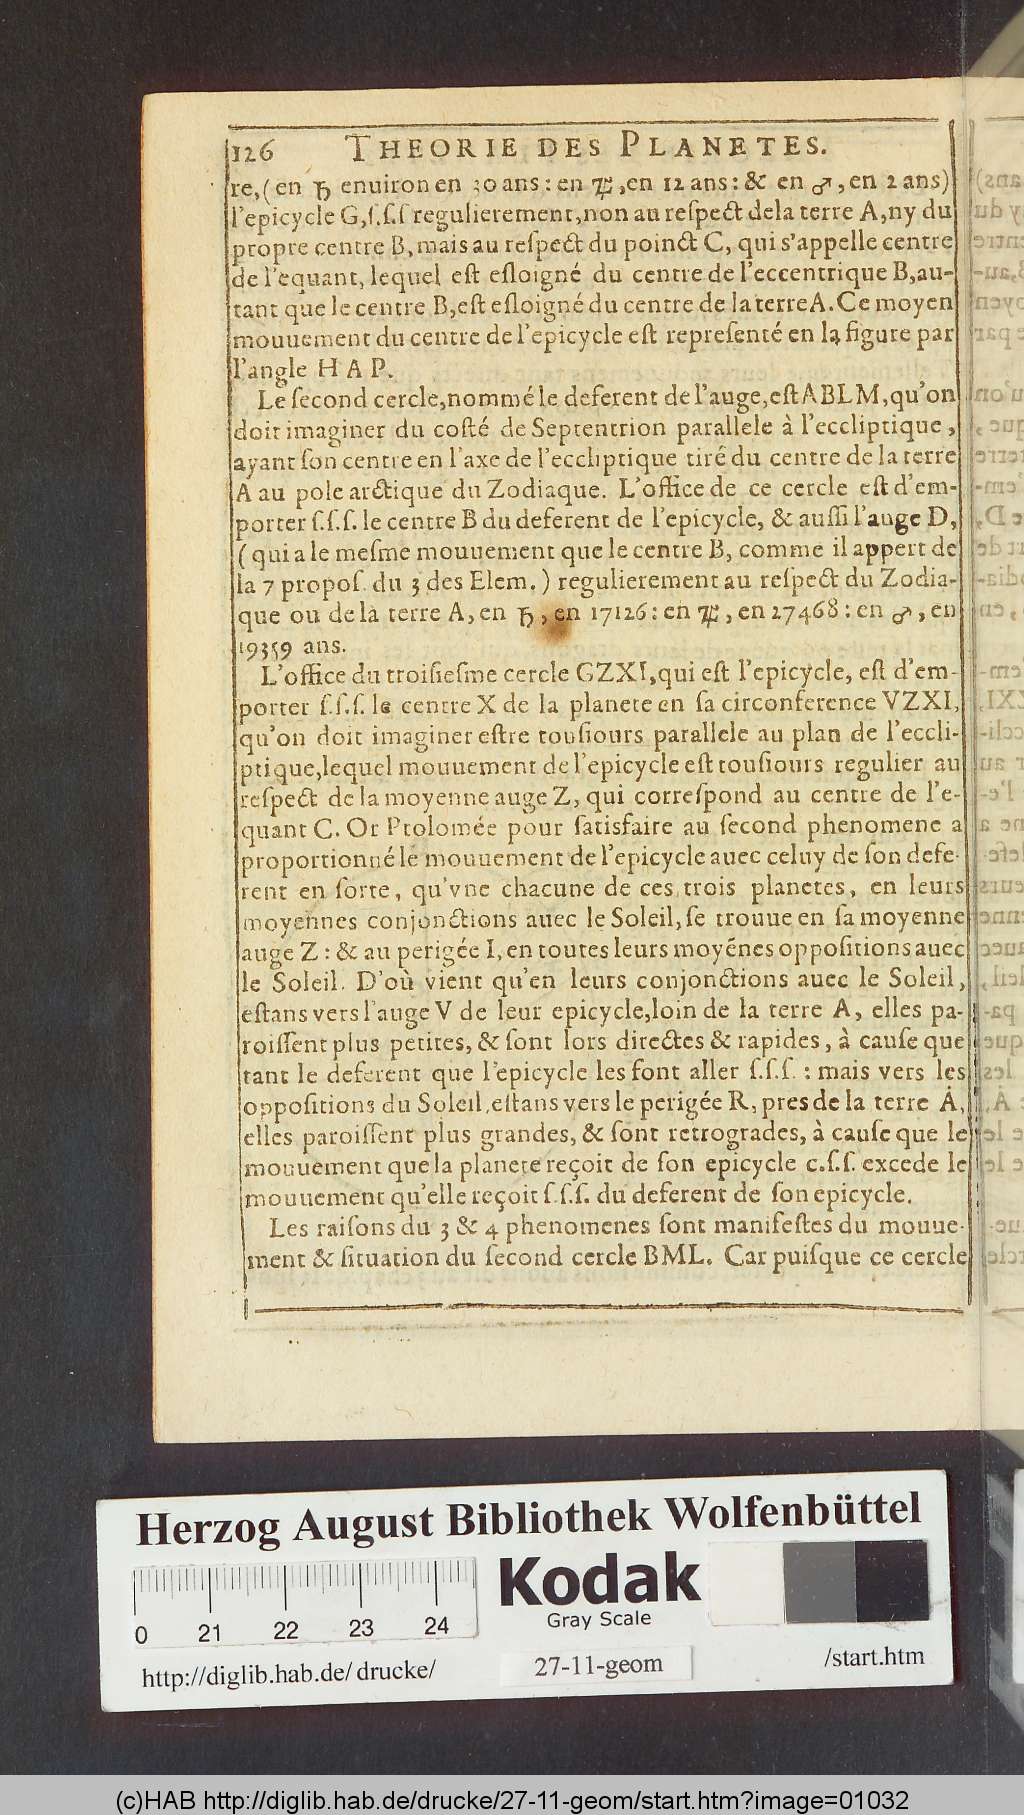 126 THEORIE DES PLANETES.
re,(en ♄ enuiron en 30 ans: en ♃, en 12 ans: & en ♂, en 2 ans)
l'epicycle G,ſ.ſ.ſ regulierement,non au reſpect dela terre A,ny du
propre centre B, mais au reſpect du poinct C, qui s'appelle centre
de l'equant, lequel eſt eſloigné du centre de l'eccentrique B,au-
tant que le centre B,eſt eſloigné du centre de la terre A. Ce moyen
mouuement du centre de l'epicycle eſt repreſenté en la figure par
l'angle H A P.
Le ſecond cercle,nommé le deferent de l'auge,eſt ABLM,qu'on
doit imaginer du coſté de Septentrion parallele à l'eccliptique,
ayant ſon centre en l'axe de l'eccliptique tiré du centre de la terre
A au pole arctique du Zodiaque. L'office de ce cercle eſt d'em-
porter ſ.ſ.ſ. le centre B du deferent de l'epicycle, & auſſi l'auge D,
(qui a le meſme mouuement que le centre B, comme il appert de
la 7 propoſ. du 3 des Elem.) regulierement au reſpect du Zodia-
que ou de la terre A, en ♄, en 17126: en ♃, en 27468: en ♂, en
19359 ans.
L'office du troiſieſme cercle GZXI,qui eſt l'epicycle, eſt d'em-
porter ſ.ſ.ſ. le centre X de la planete en ſa circonference VZXI,
qu'on doit imaginer eſtre touſiours parallele au plan de l'eccli-
ptique,lequel mouuement de l'epicycle eſt touſiours regulier au
reſpect de la moyenne auge Z, qui correſpond au centre de l'e-
quant C. Or Ptolomée pour ſatisfaire au ſecond phenomene a
proportionné le mouuement de l'epicycle auec celuy de ſon defe-
rent en ſorte, qu'vne chacune de ces trois planetes, en leurs
moyennes conjonctions auec le Soleil, ſe trouue en ſa moyenne
auge Z: & au perigée I, en toutes leurs moyēnes oppoſitions auec
le Soleil. D'où vient qu'en leurs conjonctions auec le Soleil,
eſtans vers l'auge V de leur epicycle,loin de la terre A, elles pa-
roiſſent plus petites, & ſont lors directes & rapides, à cauſe que
tant le deferent que l'epicycle les font aller ſ.ſ.ſ.: mais vers les
oppoſitions du Soleil,eſtans vers le perigée R, pres de la terre A,
elles paroiſſent plus grandes, & ſont retrogrades, à cauſe que le
mouuement que la planete reçoit de ſon epicycle c.ſ.ſ. excede le
mouuement qu'elle reçoit ſ.ſ.ſ. du deferent de ſon epicycle.
Les raiſons du 3 & 4 phenomenes ſont manifeſtes du mouue-
ment & ſituation du ſecond cercle BML. Car puiſque ce cercle
Herzog August Bibliothek Wolfenbüttel
Kodak
Gray Scale
0 21 22 23 24
http://diglib.hab.de/ drucke/ 27-11-geom /start.htm
(c)HAB http://diglib.hab.de/drucke/27-11-geom/start.htm?image=01032